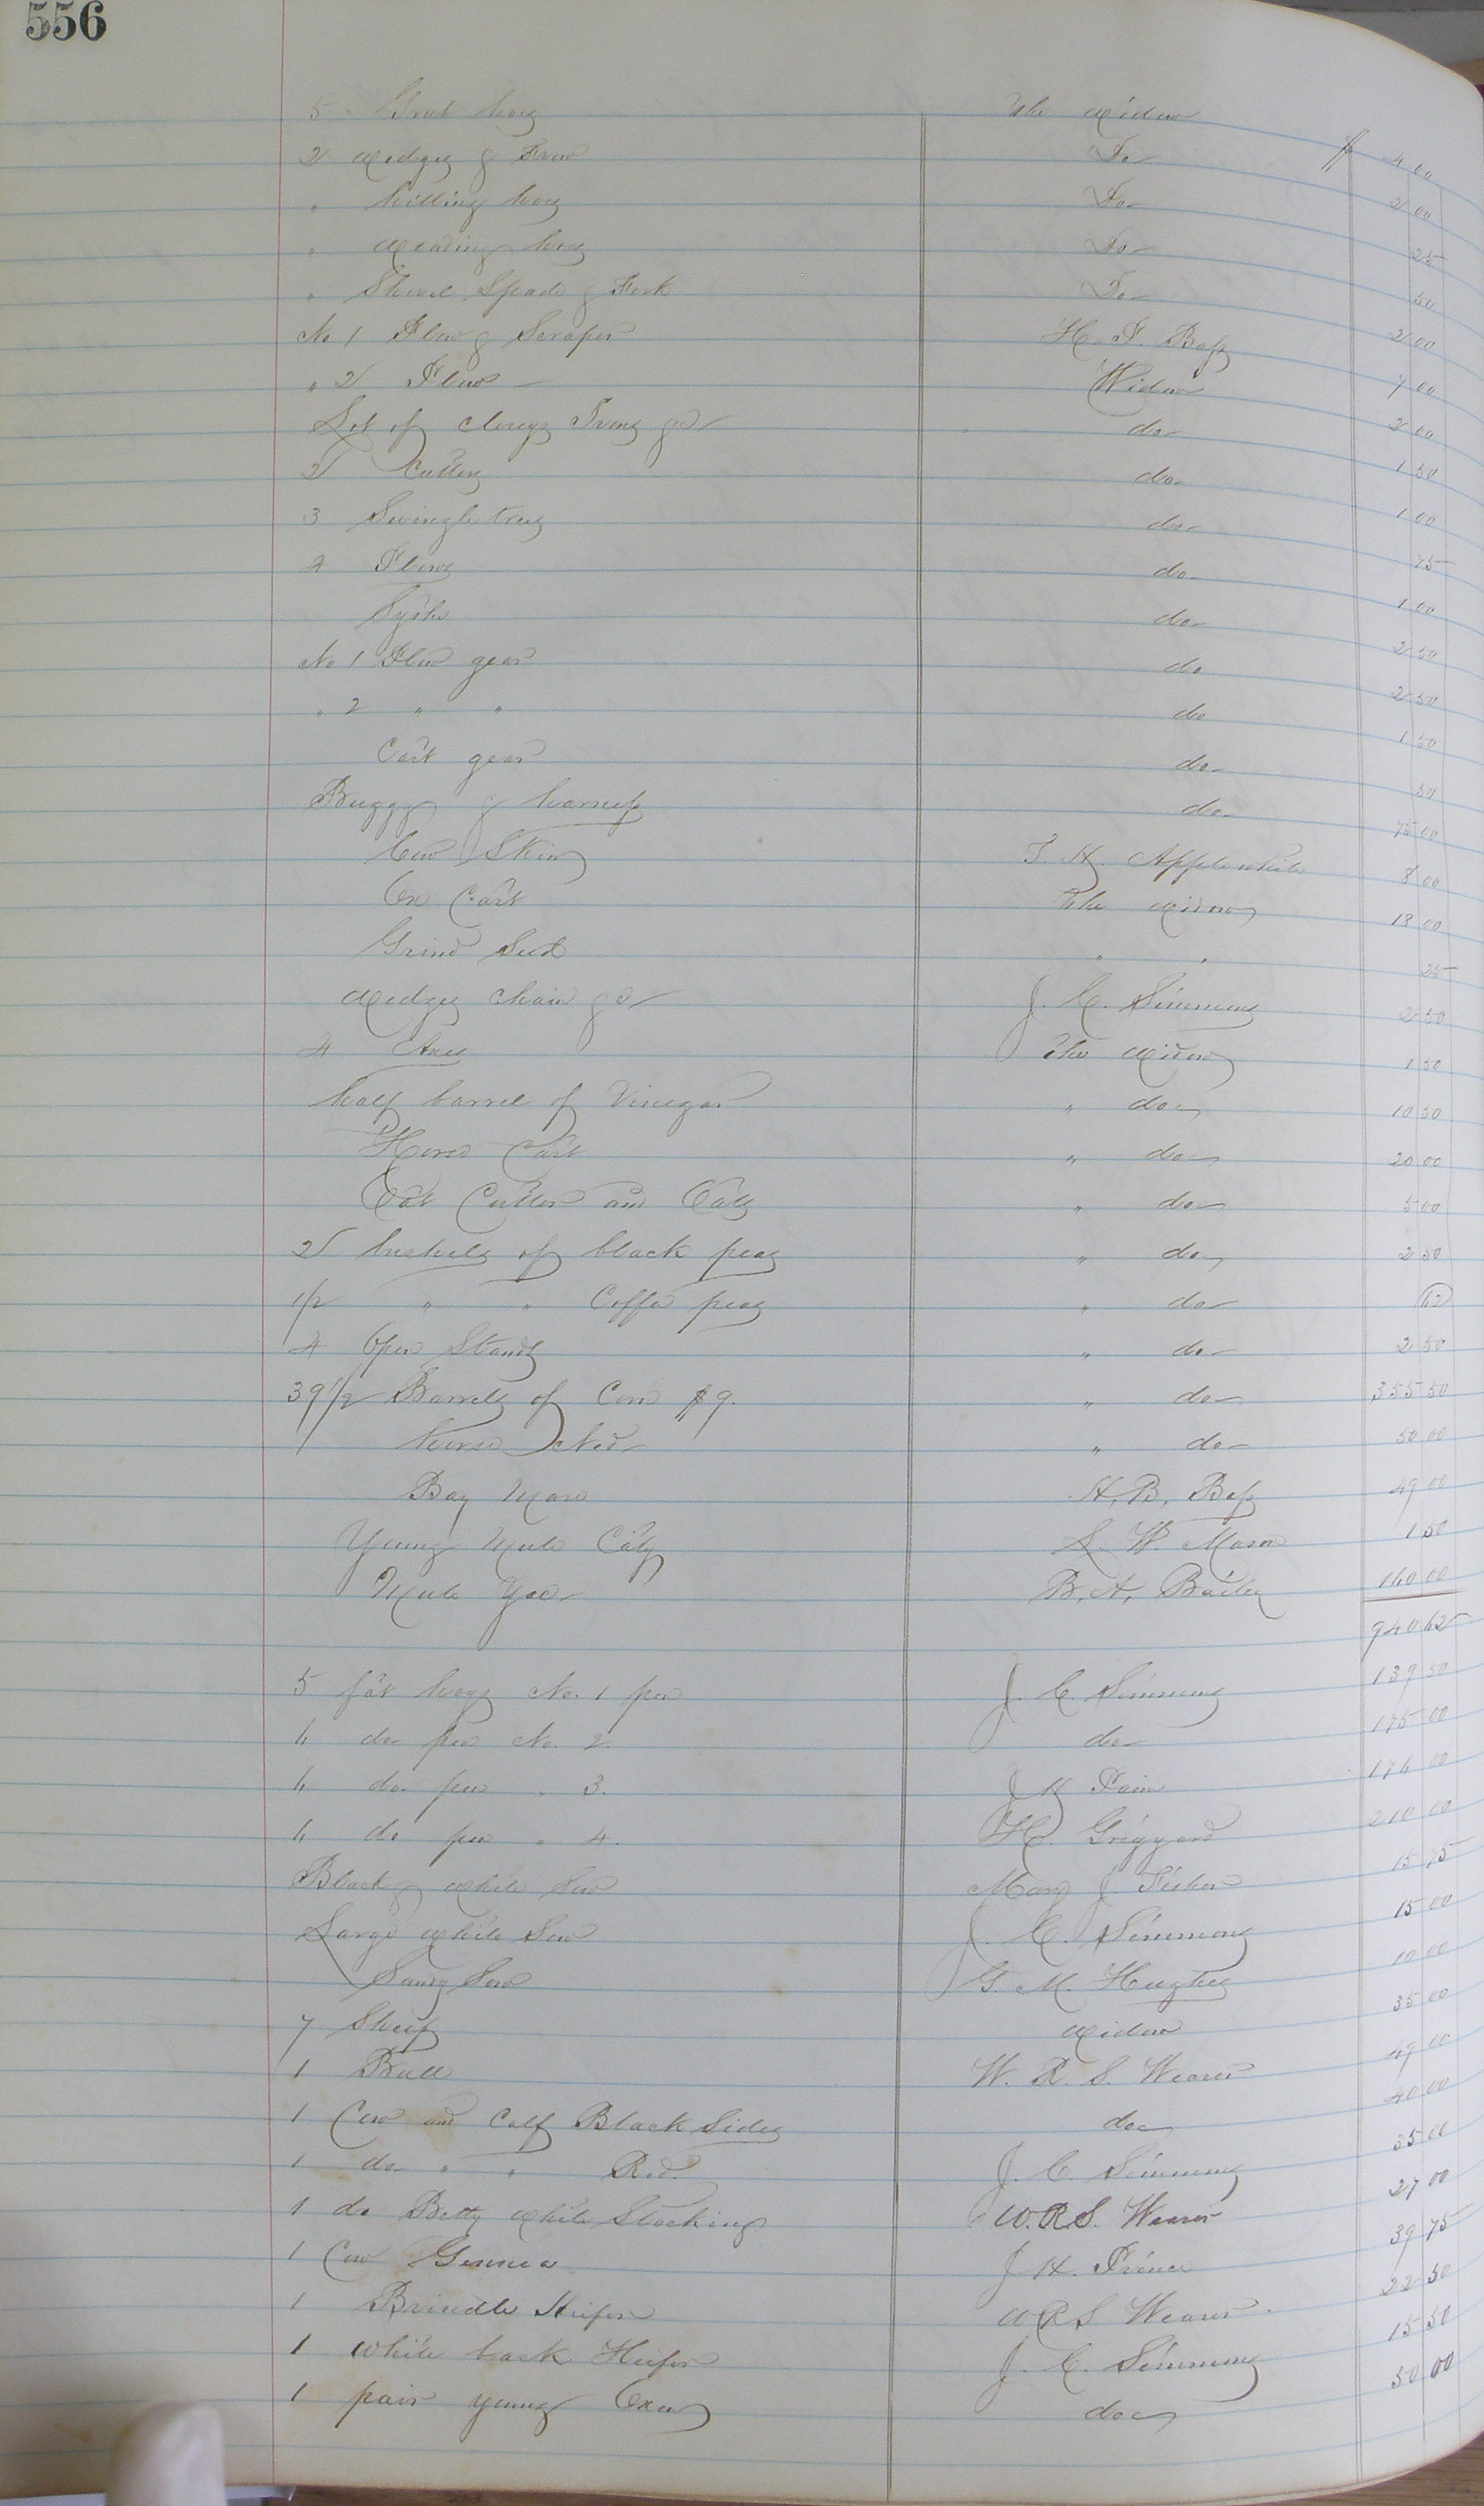 556
5 Grub hoes The Widow $ 4 00
2 Wedges & Frow Do 2 00
" hilling hoes Do 25
" Weading hoes Do 50
" Shovel Spade & Fork Do 2 00
No 1 Plow & Scraper H. F. Bass 7 00
" 2 Plow Widow 2 00
Lot of Irons do 1 50
2 Cutters do 1 00
3 Swingletrees do 75
4 Plows do 1 00
Sythe do 2 50
No 1 Plow gear do 2 50
" 2 " " do 1 50
Cart gear do 50
Buggy & harness do 75 00
Cow Skin T. H. Applewhite 8 00
Ox Cart The Widow 18 00
Grind " " 25
Wedges Chain &c J. C. Simmons 2 50
4 Axes The Widow 1 50
half barrel of Vinegar " do 10 50
Horse Cart " do 20 00
Oat Cutter and Oats " do 5 00
2 bushels of black peas " do 2 50
1/2 " " Coffe peas " do 62
4 Open Stands " do 2 50
39 1/2 Barrels of Corn $9. " do 355 50
horse Ned " do 50 00
Bay Mare H. B. Bass 49 00
Young Mule City L. W. Mason 1 50
Mule B. A. Bailey 160 00
940 62
5 fat hogs No. 1 pen J. C. Simmons 139 50
6 do pen No. 2. do 175 00
6 do pen " 3. J H Fain 176 00
6 do pen " 4. H. Griggard 210 00
Black & White Sow Mary J. Fisher 15 75
Large White Sow J. C. Simmons 15 00
Sandy Sow G. M. Hughes 10 00
7 Sheep Widow 35 00
1 Bull W. R. S. Weaver 49 00
1 Cow and Calf Black Sides do 40 00
1 do " " Red. J. C. Simmons 35 00
1 do Betty White Stockings W. R. S. Weaver 27 00
1 Cow J H. Prince 39 75
1 Brindle Heifer W R S Weaver 22 50
1 White back Heifer J. C. Simmons 15 50
1 pair young Oxen do 50 00